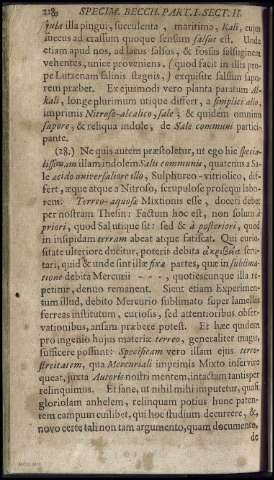 218 SPECIM. BECCH. PART. I. SECT. II.
juba illa pingui, succulenta, maritimo, Kali, cujus
succus ad crassum quoque sensum salsus est. Unde
etiam apud nos, ad lacus salsos, & fossas salsuginem
vehentes, unice proveniens, (quod facit in illis pro-
pe Lutzenam salinis stagnis,) exquisite salsum sapo-
rem præbet. Ex ejusmodi vero planta paratum Al-
kali, longe plurimum utique differt, a simplici alio,
imprimis Nitroso-alcalico, sale; & quidem omnino
sapore, & reliqua indole, de Sale communi partici-
pante.
(28.) Ne quis autem præstoletur, ut ego hic specia-
tissimam illam indolem Salis communis, quatenus a Sa-
le acido universaliore illo, Sulphureo-vitriolico, dif-
fert, æque atque a Nitroso, scrupulose prosequi labo-
rem. Terreo-aquosæ Mixtionis esse, doceri debet
per nostram Thesin: Factum hoc est, non solum à
priori, quod Sal utique sit: sed & à posteriori, quod
in insipidam terram abeat atque fatiscat. Qui curio-
sitate ulteriore ducitur, poterit debita ἀκριβείᾳ scru-
tari, quid & unde sint illæ fixæ partes, quæ in sublima-
tione debita Mercurii - - -, quotiescunque illa re-
petitur, denuo remanent. Sicut etiam Experimen-
tum illud, debito Mercurio sublimato super lamellas
ferreas institutum, curiosis, sed attentioribus obser-
vationibus, ansam præbere potest. Et hæc quidem
pro ingenio hujus materiæ terreo, generaliter magis,
sufficere possunt: Specificam vero illam ejus terre-
streitatem, qua Mercuriali imprimis Mixto inservire
queat, juxta Autoris nostri mentem, intactam tantisper
relinquimus. Et sane, ut nihil mihi imputetur, quasi
gloriolam anhelem, relinquam potius hunc paten-
tem campum cuilibet, qui hoc studium decurrere, &
novo certe tali non tam argumento, quam documento,
de